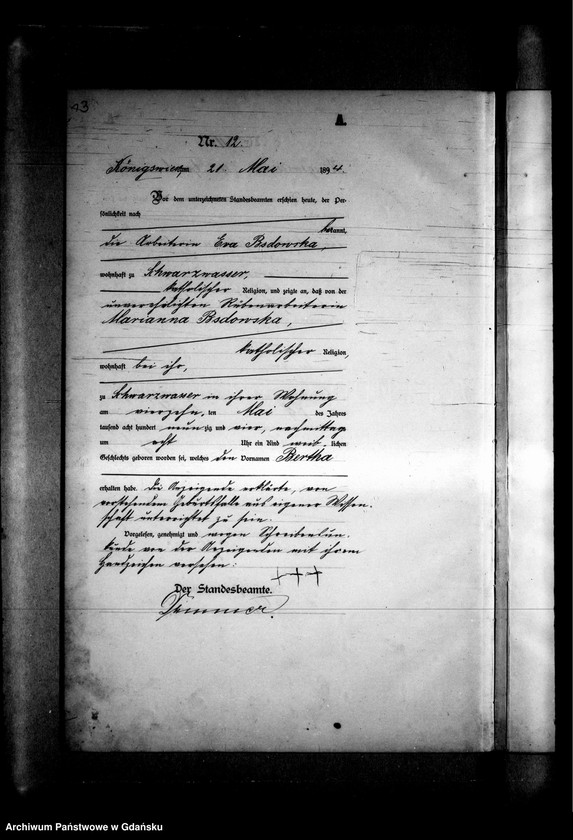 43
A.
Nr. 12.
Königswiese, am 21 Mai 1894.
Vor dem unterzeichneten Standesbeamten erschien heute, der Per-
sönlichkeit nach
bekannt,
die Arbeiterin Eva Bsdowska,
wohnhaft zu Schwarzwasser,
katholischer Religion, und zeigte an, daß von der
unverehelichten Rübenarbeiterin
Marianna Bsdowska,
katholischer Religion,
wohnhaft bei ihr,
zu Schwarzwasser in ihrer Wohnung
am vierzehn ten Mai des Jahres
tausend acht hundert neun zig und vier, nachmittag
um acht Uhr ein Kind weib lichen
Geschlechts geboren worden sei, welches den Vornamen Bertha
erhalten habe. Die Anzeigende erklärte, von
vorstehendem Geburtsfalle aus eigener Wissen-
schaft unterrichtet zu sein.
Vorgelesen, genehmigt und wegen Schreibenun-
kunde von der Anzeigenden mit ihrem
Handzeichen versehen:
+++
Der Standesbeamte.
Archiwum Państwowe w Gdańsku